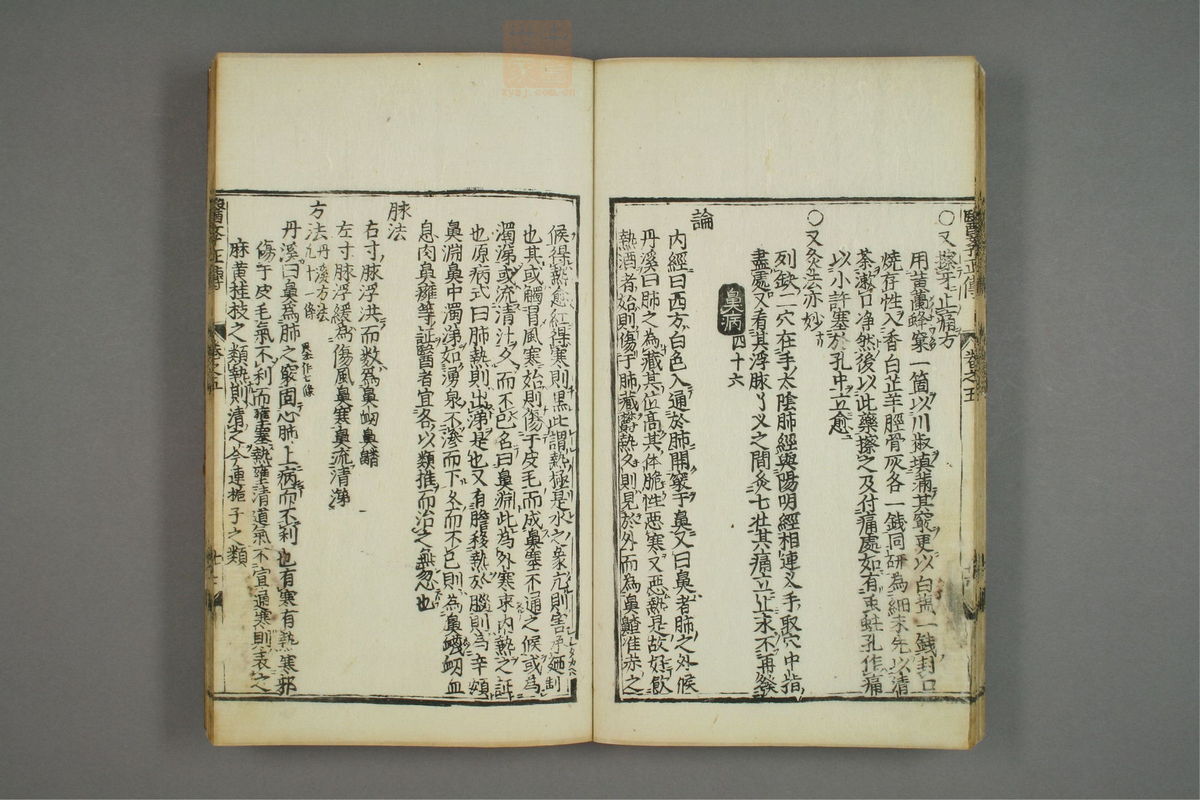 ○又擦牙止痛方
用黄蘭蜂窠一箇以川椒填滿其竅更以白塩一錢封口
燒存性入香白芷羊脛骨灰各一錢同研為細末先以清
茶漱口净然後以此藥擦之及付痛處如有虫蛀孔作痛
以小許塞於孔中立愈
○又灸法亦妙
列缺二穴在手太陰肺經與陽明經相連义手取穴中指
盡處又看其浮脉丫义之間灸七壮其痛立止永不再發
鼻病四十六
論
内經曰西方白色入通於肺開竅于鼻又曰鼻者肺之外候
丹溪曰肺之為藏其位高其体脆性惡寒又惡熱是故好飲
熱酒者始則傷于肺藏欝熱久則見於外而為鼻齄准赤之
醫學正傳
卷之五
候得熱愈紅得寒則黒此謂熱極是水之象亢則害承廼制
也其或觸冐風寒始則傷于皮毛而成鼻塞不通之候或為
濁涕或流清汁久而不已名曰鼻淵此為外寒束内熱之証
也原病式曰肺熱則出涕是也又有膽移熱於腦則為辛頞
鼻淵鼻中濁涕如湧泉不滲而下久而不已則為鼻衊衂血
息肉鼻癰等証醫者宜各以類推而治之無忽也
脉法
右寸脉浮洪而数為鼻衂鼻齇
左寸脉浮緩為傷風鼻寒鼻流清涕
方法丹溪方法九十一條
丹溪曰鼻為肺之竅固心肺上病而不利也有寒有熱寒邪
傷于皮毛氣不利而壅塞熱壅清道氣不宣通寒則表之
麻黄桂枝之類熱則清之芩連梔子之類
醫學正傳
卷之五